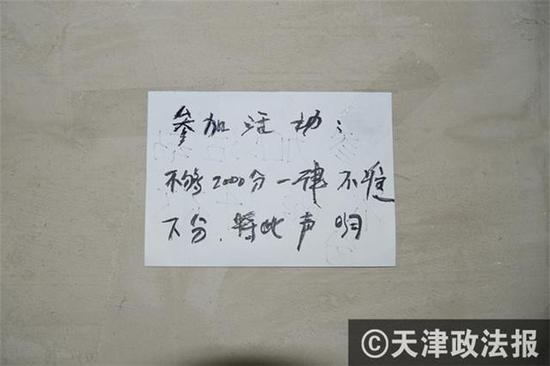 参加活动：
不够2000分一律不准
下分，特此声明
©天津政法报